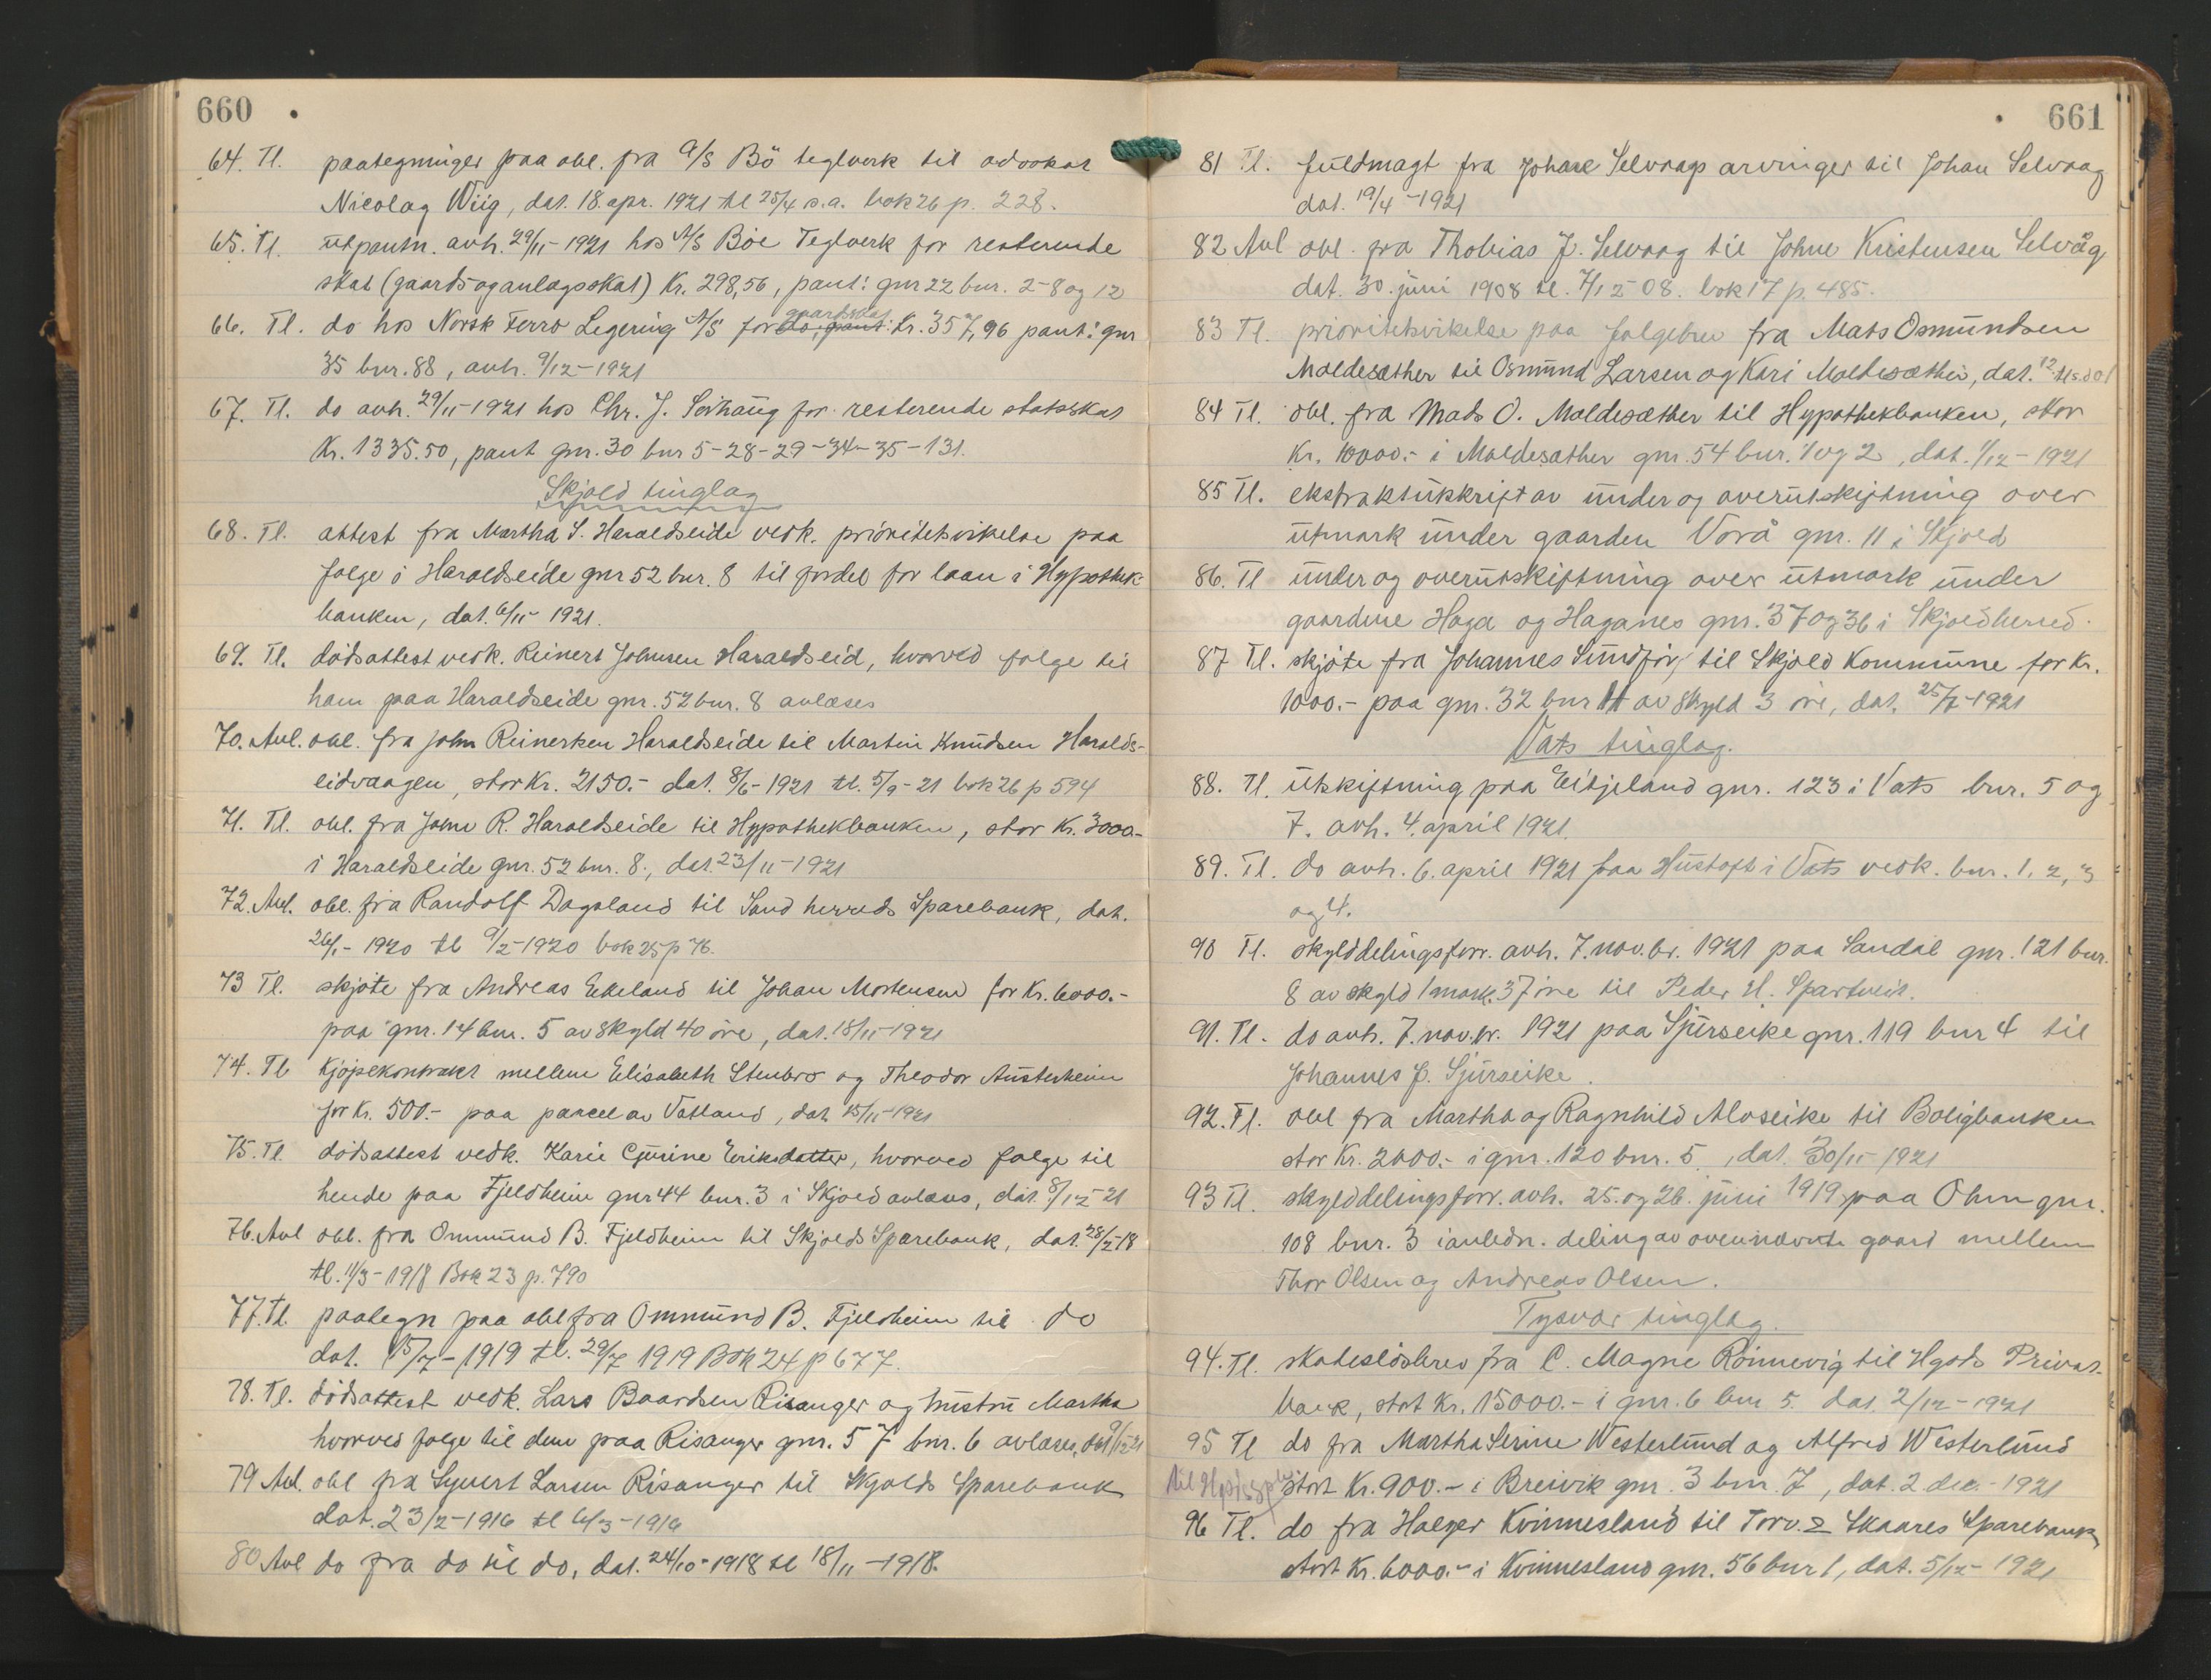 660
64. Tl. paategninger paa obl. fra A/S Bö teglverk til advokat
Nicolay Wiig, dat. 18. apr. 1921 tl 25/4 s.a. bok 26 p. 228.
65. Tl. utpantn. avh. 29/11-1921 hos A/S Böe Teglverk for resterende
skat (gaards og anlagsskat) Kr. 298,56, pant: gnr 22 bnr. 2-8 og 12
66. Tl. do hos Norsk Ferro Legering A/S for do, pant: gaardsskat Kr. 357,96 pant: gnr
35 bnr. 88, avh. 9/12-1921
67. Tl. do avh. 29/11-1921 hos Chr. J. Sörhaug for resterende statsskat
Kr. 1335.50, pant gnr. 30 bnr 5-28-29-34-35-131.
Skjold tinglag
68. Tl. attest fra Martha S. Haraldseide vedk. prioritetsvikelse paa
folge i Haraldseide gnr 52 bnr. 8 til fordel for laan i Hypothek-
banken, dat. 6/11 1921.
69. Tl. dödsattest vedk. Reinert Johnsen Haraldseid, hvorved folge til
ham paa Haraldseide gnr. 52 bnr. 8 avlæses
70. Avl. obl. fra John Reinertsen Haraldseide til Martin Knudsen Haralds-
eidvaagen, stor Kr. 2150.- dat. 8/6-1921 tl. 5/9-21 bok 26 p 594
71. Tl. obl. fra John R. Haraldseide til Hypothekbanken, stor Kr. 3000.-
i Haraldseide gnr. 52 bnr. 8., dat. 23/11-1921
72. Avl. obl. fra Randolf Dagsland til Sand herreds Sparebank, dat.
26/1-1920 tl 9/2-1920 bok 25 p 76.
73 Tl. skjöte fra Andreas Eikeland til Johan Mortensen for Kr. 6000.-
paa gnr. 14 bnr. 5 av skyld 40 öre, dat. 18/11-1921
74. Tl Kjöpekontrakt mellem Elisabeth Stenbro og Theodor Austerheim
for Kr. 500.- paa parcel av Vatland, dat. 15/11-1921
75. Tl. dödsattest vedk. Karie Gurine Eriksdatter, hvorved folge til
hende paa Fjeldheim gnr 44 bnr. 3 i Skjold avlæses, dat. 8/12-21
76. Avl obl. fra Ommund B. Fjeldheim til Skjolds Sparebank, dat. 28/2-18
tl. 11/3-1918 Bok 23 p. 790
77. Tl. paategn paa obl fra Ommund B. Fjeldheim til do
dat. 15/7-1919 tl. 29/7 1919 Bok 24 p 677.
78. Tl. dödsattest vedk. Lars Baardsen Risanger og hustru Martha
hvorved folge til dem paa Risanger gnr. 57 bnr. 6 avlæses, dat 9/12-21
79 Avl. obl fra Syvert Larsen Risanger til Skjolds Sparebank
dat. 23/2-1916 tl 6/3-1916
80 Avl do fra do til do, dat. 24/10-1918 tl 18/11-1918.
661
81 Tl. fuldmagt fra Johan Selvaags arvinger til Johan Selvaag
dat. 19/4-1921
82 Avl obl. fra Thobias J. Selvaag til Johne Kristensen Selvåg
dat. 30. juni 1908 tl. 7/12-08. bok 17 p. 485.
83 Tl. prioritetsvikelse paa folgebrev fra Mats Osmundsen
Moldesæther til Osmund Larsen og Kari Moldesæther, dat.
84 Tl. obl. fra Mads O. Moldesæther til Hypothekbanken, stor
Kr. 10000.- i Moldesæther gnr. 54 bnr. 1 og 2, dat. 1/12-1921
85 Tl. ekstraktutskrift av under og overutskiftning over
utmark under gaarden Vorå gnr. 11 i Skjold
86. Tl under og overutskiftning over utmark under
gaardene Haga og Haganes gnr. 37 og 36 i Skjold herred.
87 Tl. skjöte fra Johannes Sundför til Skjold Kommune for Kr.
1000.- paa gnr. 32 bnr 14 av skyld 3 öre, dat. 25/7-1921
Vats tinglag.
88. Tl. utskiftning paa Eikjeland gnr. 123 i Vats bnr. 5 og
7. avh. 4. april 1921.
89. Tl. do avh. 6. april 1921 paa Hustoft i Vats vedk. bnr. 1, 2, 3
og 4.
90 Tl. skylddelingsforr. avh. 7. nov.br. 1921 paa Sandal gnr. 121 bnr.
8 av skyld 1 mark 37 öre til Peder El. Spartveit.
91. Tl. do avh. 7. nov.br. 1921 paa Sjurseike gnr. 119 bnr 4 til
Johannes J. Sjurseike.
92. Tl. obl fra Martha og Ragnhild Alvseike til Boligbanken
stor Kr. 2000.- i gnr. 120 bnr. 5, dat. 30/11-1921
93 Tl. skylddelingsforr. avh. 25. og 26. juni 1919 paa Ohm gnr.
108 bnr. 3 i anledn. deling av ovennævnte gaard mellem
Thor Olsen og Andreas Olsen.
Tysvær tinglag.
94. Tl. skadeslösbrev fra C. Magne Rönnevig til Hgsds Privat-
bank, stort Kr. 15000.- i gnr. 6 bnr 5. dat. 2/12-1921
95 Tl do fra Martha Serine Westerlund og Alfred Westerlund
stort Kr. 900.- i Breivik gnr. 3 bnr. 7, dat. 2 dec. 1921
96 Tl. do fra Holger Kvinnesland til Torv. & Skaares Sparebank
stort Kr. 6000.- i Kvinnesland gnr. 56 bnr 1, dat. 5/12-1921